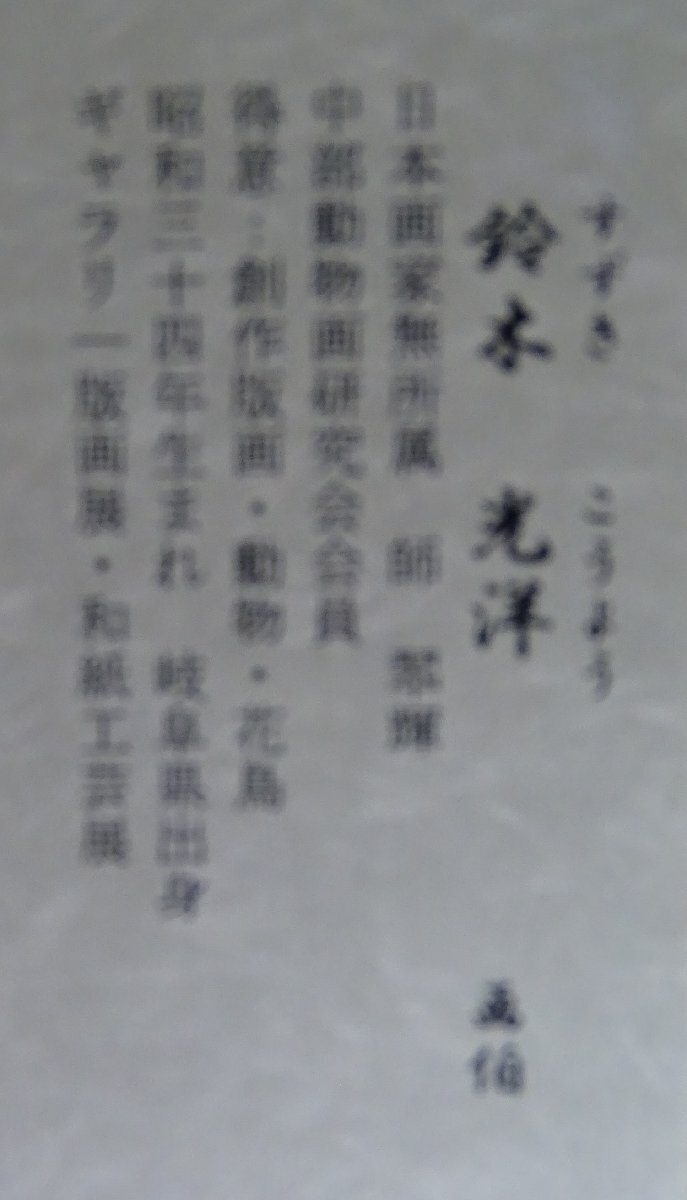 すずき こうよう
鈴木 光洋 画伯
日本画家無所属 師 翠輝
中部動物画研究会会員
得意:創作版画・動物・花鳥
昭和三十四年生まれ 岐阜県出身
ギャラリー版画展・和紙工芸展